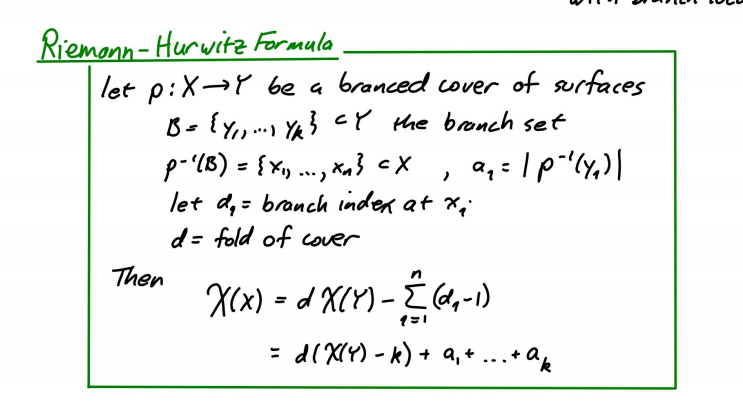 Riemann-Hurwitz Formula
let p: X → Y be a branced cover of surfaces
B = {y₁, ..., yₖ} ⊂ Y the branch set
p⁻¹(B) = {x₁, ..., xₙ} ⊂ X , aᵢ = |p⁻¹(yᵢ)|
let dᵢ = branch index at xᵢ.
d = fold of cover
Then
χ(X) = d χ(Y) - ∑ᵢ₌₁ⁿ (dᵢ-1)
= d(χ(Y) - k) + a₁ + ... + aₖ